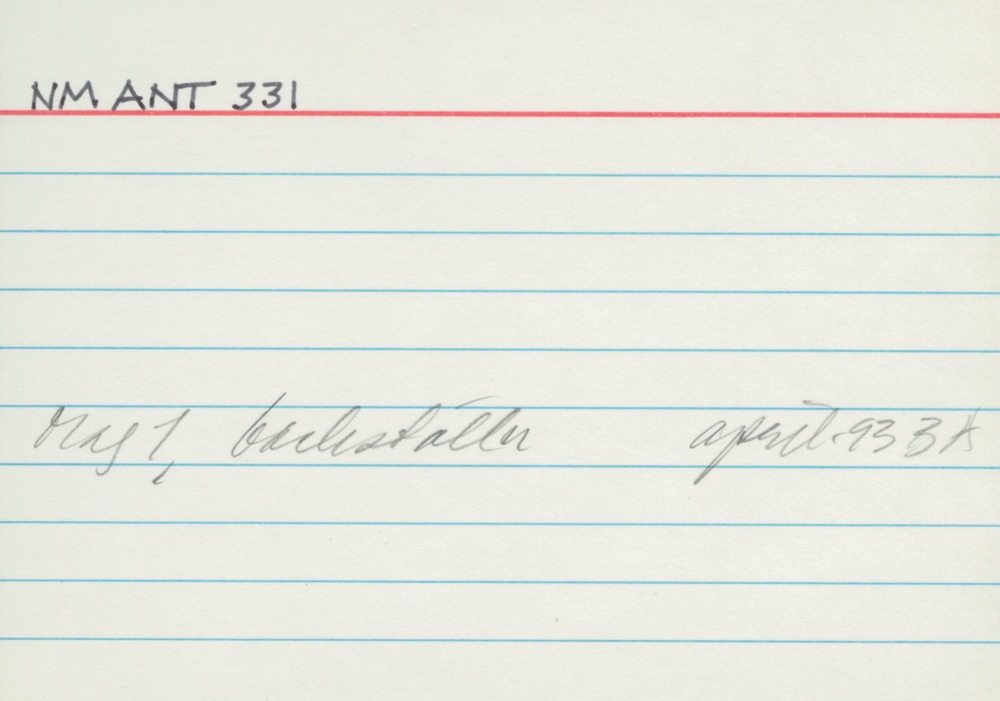 NM ANT 331
Mag 1, backställen april-93 BA